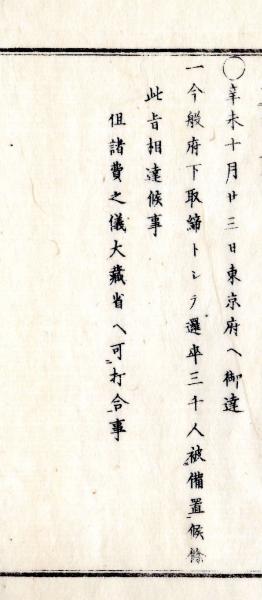 ○辛未十月廿三日東京府ヘ御達
一今般府下取締トシテ邏卒三千人被備置候條
此旨相達候事
但諸費之儀大藏省ヘ可打合事